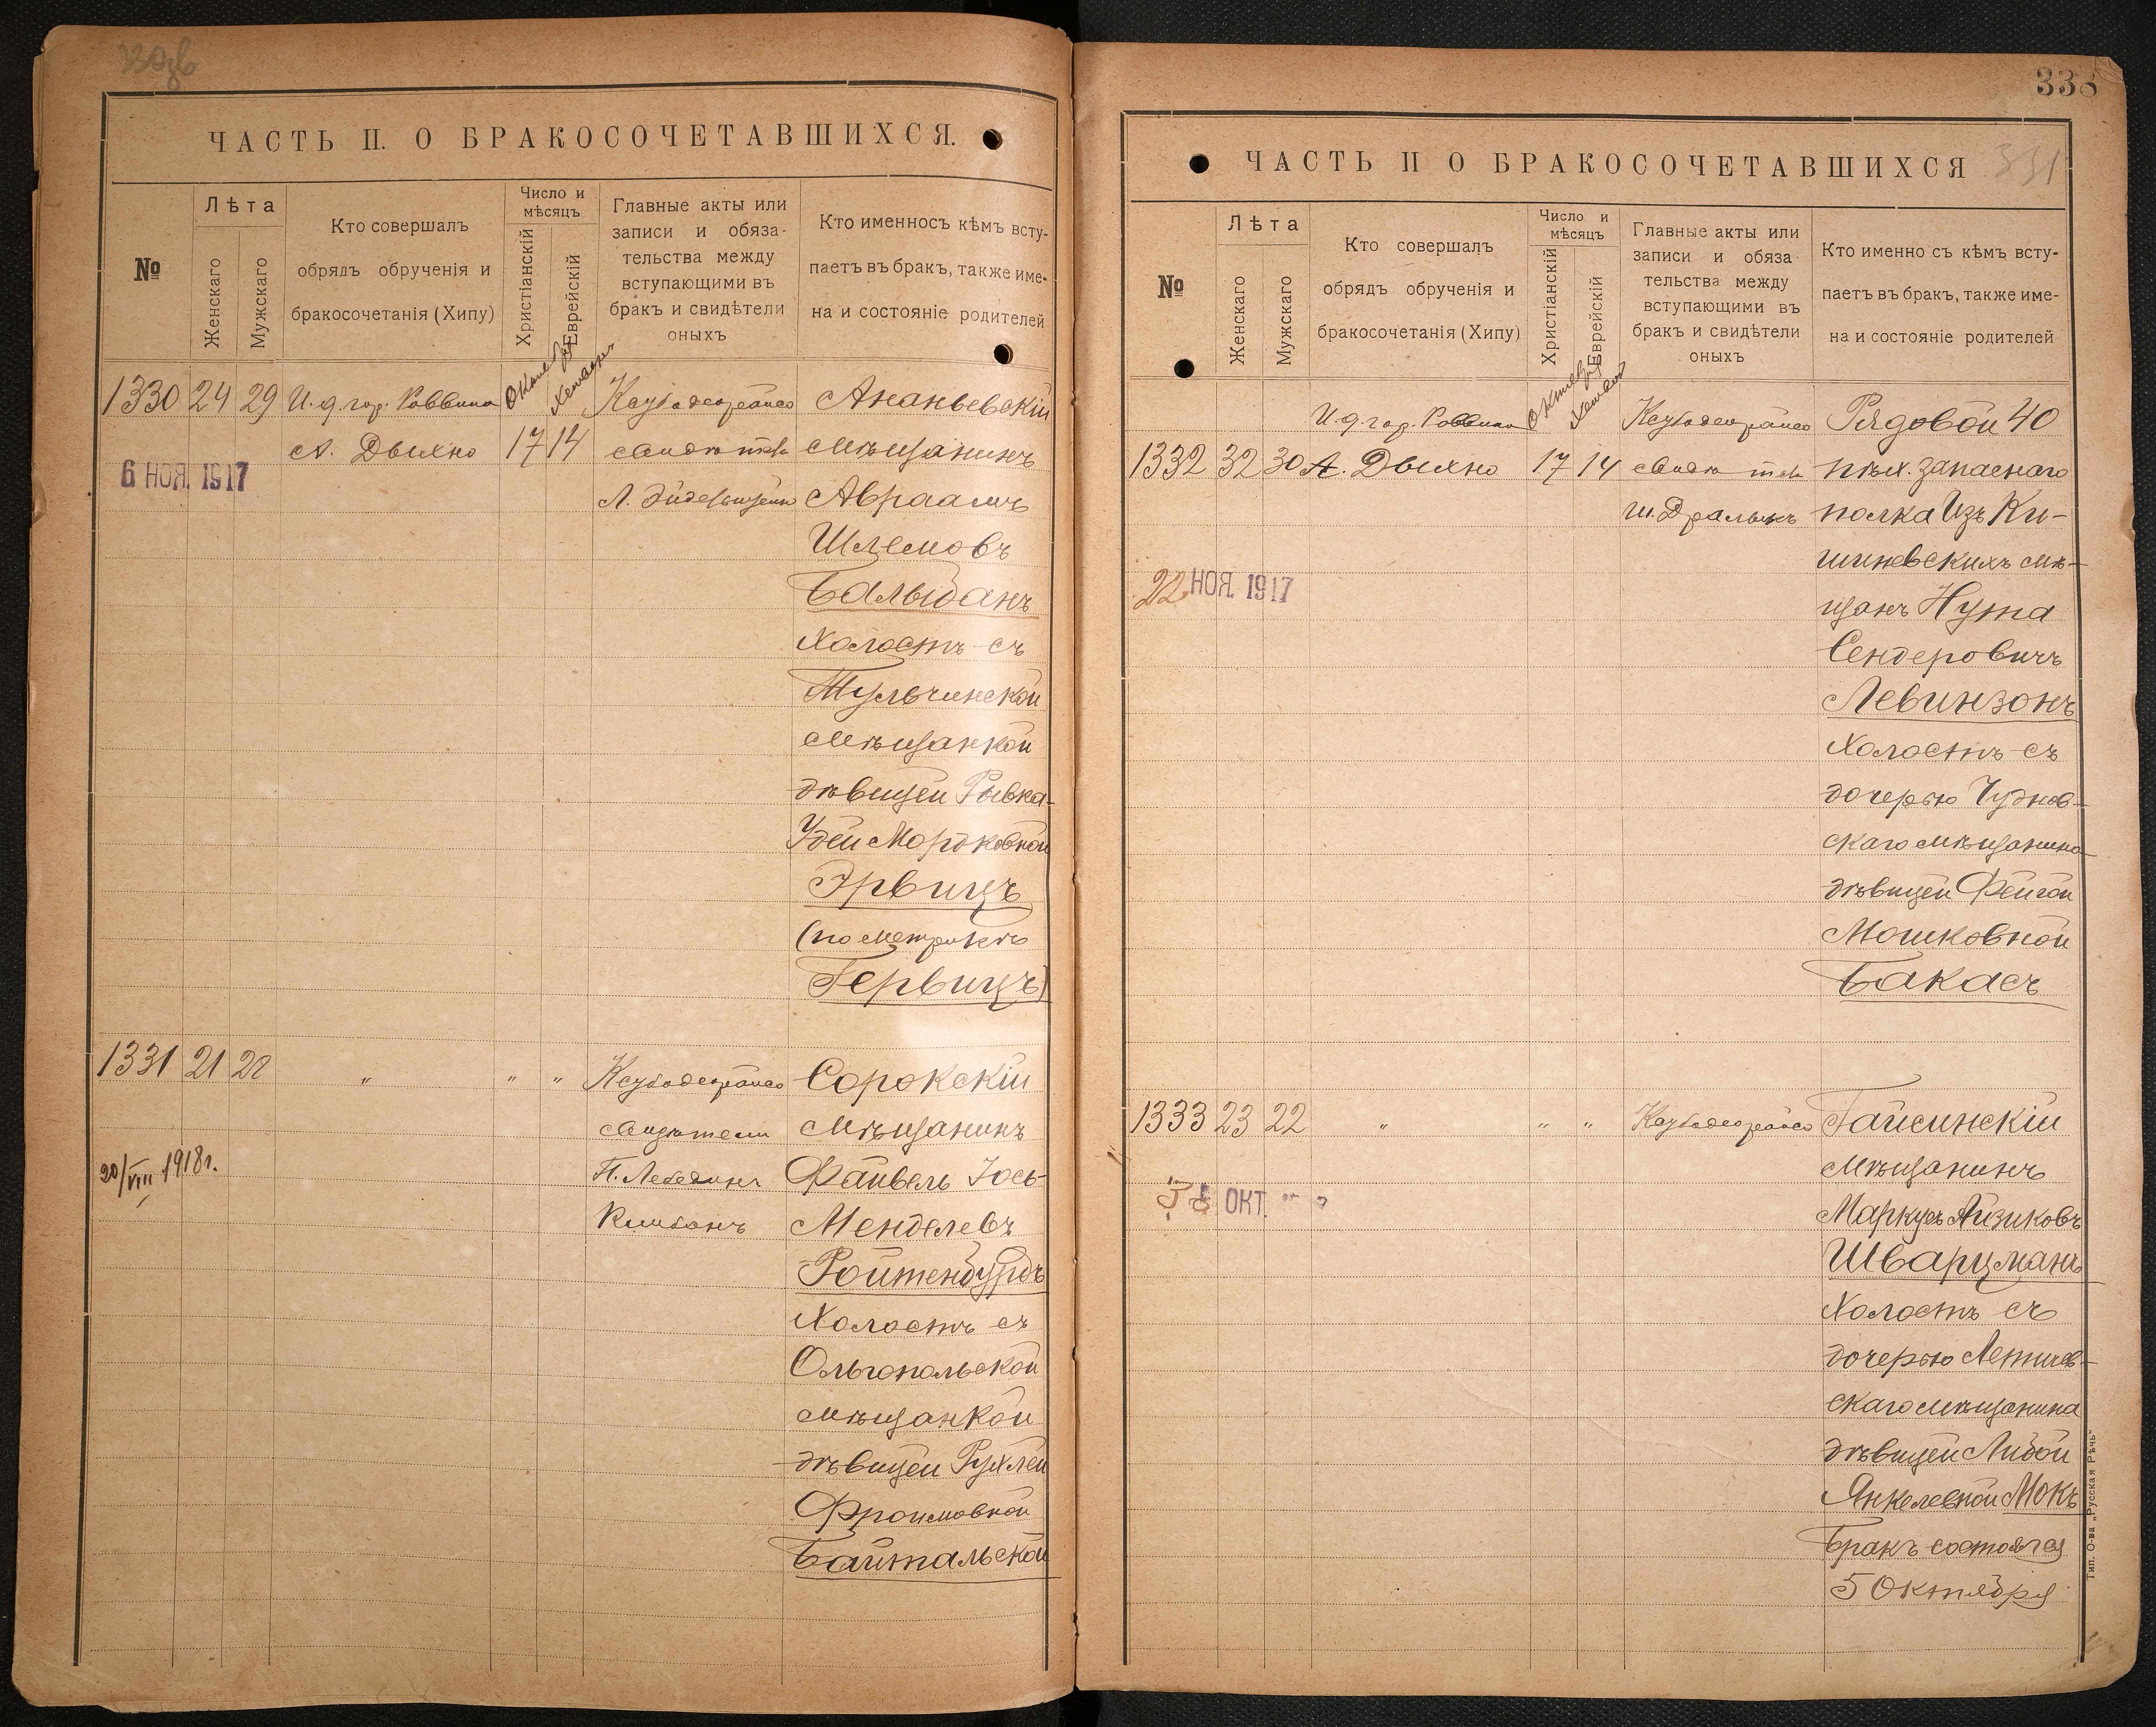 ЧАСТЬ II. О БРАКОСОЧЕТАВШИХСЯ.
№
Лѣта
Женскаго
Мужскаго
Кто совершалъ
обрядъ обрученія и
бракосочетанія (Хипу)
Число и
мѣсяцъ.
Христіанскій
Еврейскій
Главные акты или
записи и обяза-
тельства между
вступающими въ
бракъ и свидѣтели
оныхъ
Кто именносъ кѣмъ всту-
паетъ въ бракъ, также име-
на и состояніе родителей
1330 24 29 И. д. гор. Раввина
А. Дыхно
17 14
свидѣтели
Ананьевскій
мѣщанинъ
Авраамъ
Шлемовъ
Бальданъ
холостъ съ
Тульчинской
мѣщанкой
дѣвицей Ривка-
Удей Мордковной
Эрвицъ
(по метрикѣ
Гервицъ)
6 НОЯ. 1917
1331 21 22 " " "
свидѣтели
Сорокскій
мѣщанинъ
Файвель Іось-
Менделевъ
Ройтенбурдъ
холостъ съ
Ольгопольской
мѣщанкой
дѣвицей Рухлей
Фроимовной
Байтальской
20/VIII 1918 г.
338
331
ЧАСТЬ II О БРАКОСОЧЕТАВШИХСЯ
№
Лѣта
Женскаго
Мужскаго
Кто совершалъ
обрядъ обрученія и
бракосочетанія (Хипу)
Число и
мѣсяцъ
Христіанскій
Еврейскій
Главные акты или
записи и обяза
тельства между
вступающими въ
бракъ и свидѣтели
оныхъ
Кто именно съ кѣмъ всту-
паетъ въ бракъ, также име-
на и состояніе родителей
И. д. гор. Раввина
1332 32 30 А. Дыхно
17 14
свидѣтели
Рядовой 40
пѣх. запаснаго
полка Изъ Ки-
шиневскихъ мѣ-
щанъ Нута
Сендеровичъ
Левинзонъ
холостъ съ
дочерью Чуднов-
скаго мѣщанина
дѣвицей Фейгой
Мошковной
Бакасъ
22 НОЯ. 1917
1333 23 22 " " "
Гайсинскій
мѣщанинъ
Маркусъ Айзиковъ
Шварцманъ
холостъ съ
дочерью Летичев-
скаго мѣщанина
дѣвицей Либой
Янкелевной Мокъ
Бракъ состоялся
5 Октября
ОКТ.
Тип. О-ва „Русская Рѣчь“